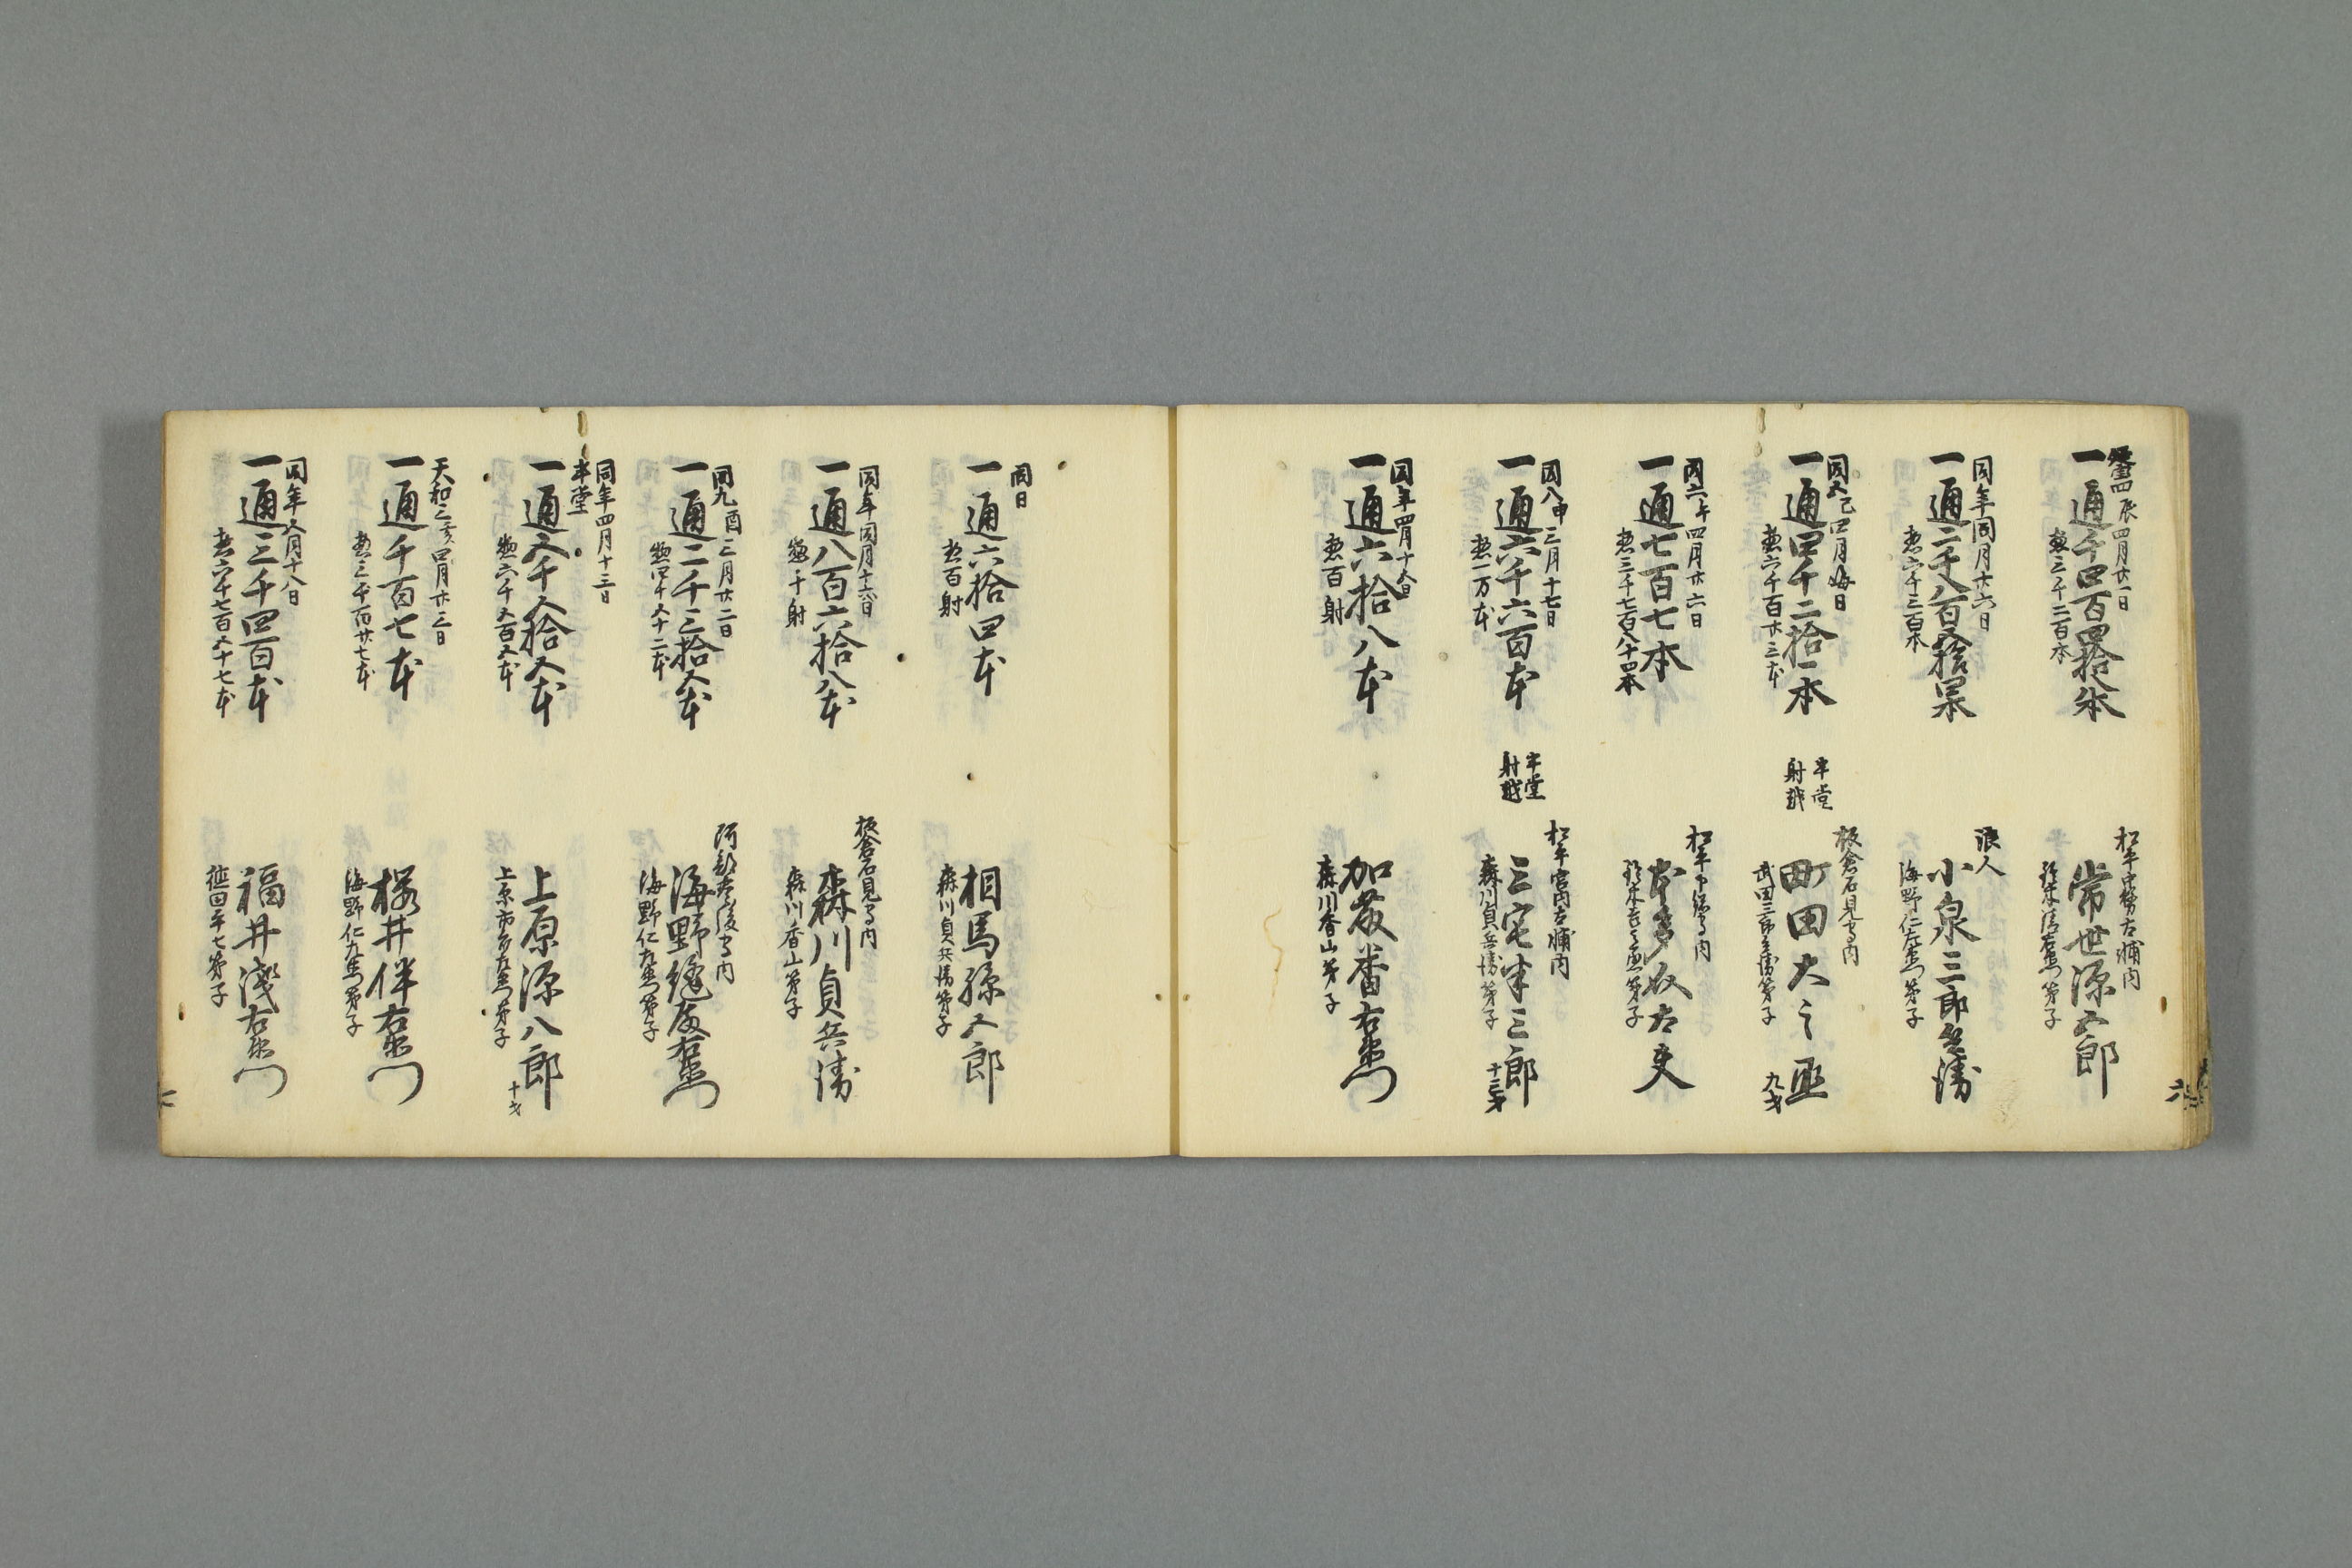 四辰四月廿一日
一通千四百四拾六本
惣二千二百本
松平中務少輔内
常世源五郎
鈴木清右衛門弟子
同年同月廿六日
一通二千八百拾四本
惣六千三百本
浪人
小泉三郎兵衛
海野仁左衛門弟子
同五巳四月晦日
一通四千二拾一本
惣六千百廿三本
半堂
射越
板倉石見守内
町田大之丞
九才
武田三郎兵衛弟子
同六午四月廿六日
一通七百七本
惣三千七百八十四本
本多奴太夫
同八申三月十七日
一通六千六百本
惣一万本
半堂
射越
松平宮内少輔内
三宅半三郎
十三才
森川貞兵衛弟子
同年四月十六日
一通六拾八本
惣百射
加藤番右衛門
森川香山弟子
六
同日
一通六拾四本
惣百射
相馬孫五郎
森川貞兵衛弟子
同年同月十六日
一通八百六拾八本
惣千射
板倉石見守内
森川貞兵衛
森川香山弟子
同九酉三月廿二日
一通二千三拾五本
惣四千五十二本
海野縫殿右衛門
海野仁左衛門弟子
同年四月十三日
半堂
一通五千五拾五本
惣六千五百五本
上原源八郎
十才
上原市郎左衛門弟子
天和三亥四月廿三日
一通千百七本
惣三千百廿七本
桜井伴右衛門
海野仁左衛門弟子
同年五月十八日
一通三千四百本
惣六千七百五十七本
福井浅右衛門
徳田平七弟子